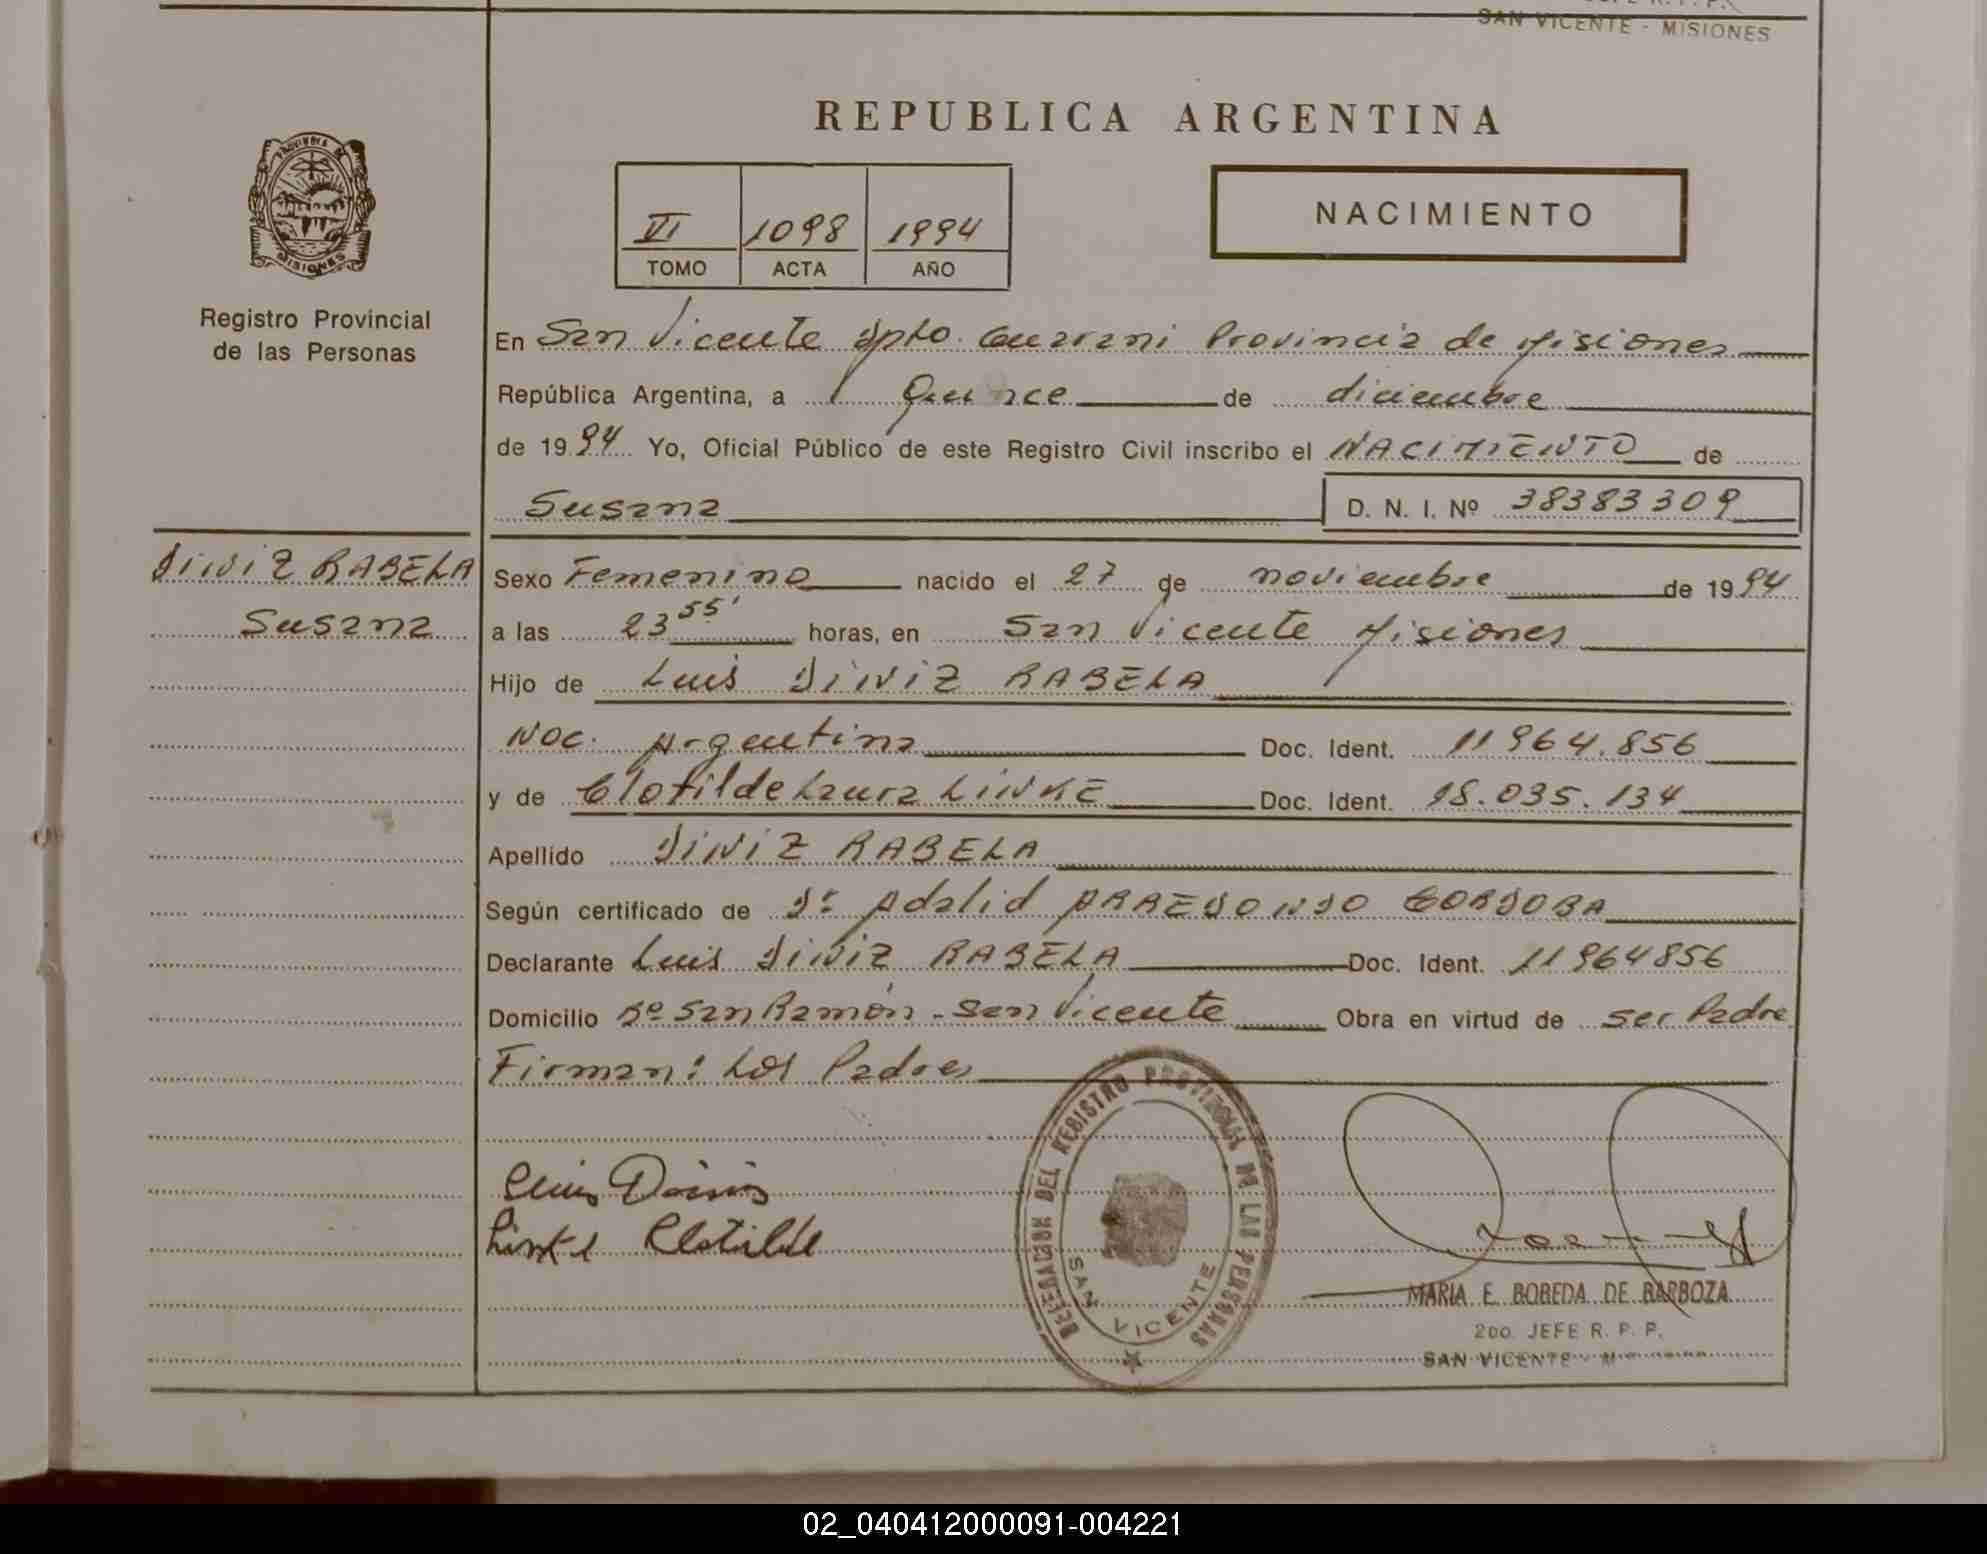 SAN VICENTE - MISIONES
REPUBLICA ARGENTINA
PROVINCIA DE MISIONES
VI 1098 1994
TOMO ACTA AÑO
NACIMIENTO
Registro Provincial
de las Personas
En San Vicente Dpto. Guarani Provincia de Misiones
República Argentina, a Quince de diciembre
de 1994 Yo, Oficial Público de este Registro Civil inscribo el NACIMIENTO de
Susana D. N. I. Nº 38383309
DINIZ RABELA
Susana
Sexo Femenino nacido el 27 de noviembre de 1994
a las 23 55' horas, en San Vicente Misiones
Hijo de Luis DINIZ RABELA
Nac. Argentina Doc. Ident. 11964.856
y de Clotilde Laura LINKE Doc. Ident. 18.035.134
Apellido DINIZ RABELA
Según certificado de Dr. Adalid ARREDONDO CORDOBA
Declarante Luis DINIZ RABELA Doc. Ident. 11964856
Domicilio Bº San Ramón - San Vicente Obra en virtud de ser Padre
Firman: Los Padres
Luis Dinis
Linke Clotilde
DELEGACION DEL REGISTRO PROVINCIAL DE LAS PERSONAS
SAN VICENTE
MARIA E. BOBEDA DE BARBOZA
2DO. JEFE R. P. P.
SAN VICENTE - M
02_040412000091-004221